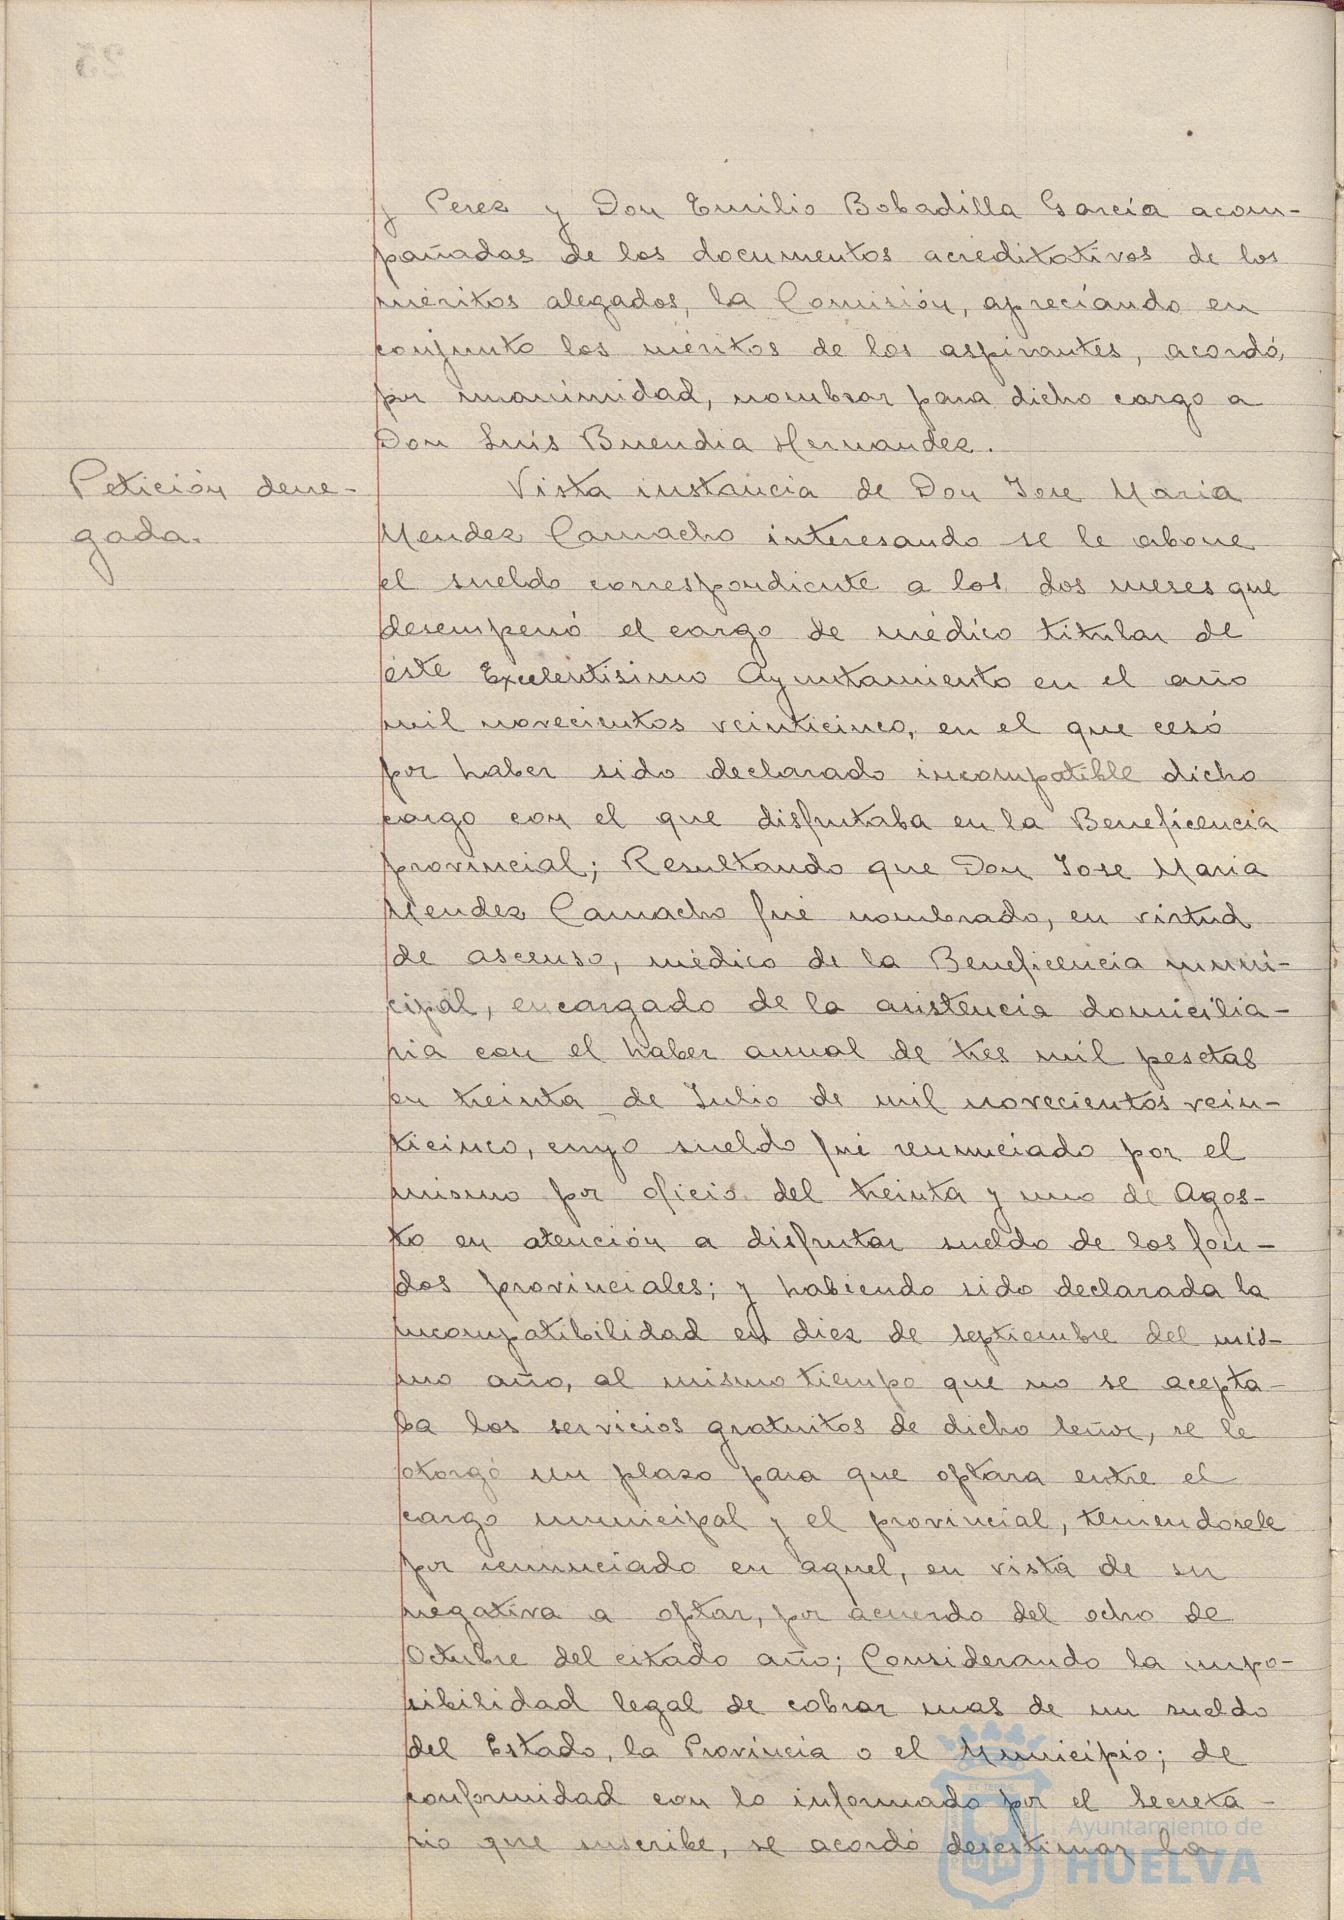 y Perez y Don Emilio Bobadilla García acom-
pañadas de los documentos acreditativos de los
méritos alegados, la Comisión, apreciando en
conjunto los méritos de los aspirantes, acordó,
por unanimidad, nombrar para dicho cargo a
Don Luís Buendia Hernandez.
Petición dene-
gada.
Vista instancia de Don Jose Maria
Mendez Camacho interesando se le abone
el sueldo correspondiente a los dos meses que
desempenó el cargo de médico titular de
éste Excelentísimo Ayuntamiento en el año
mil novecientos veinticinco, en el que cesó
por haber sido declarado incompatible dicho
cargo con el que disfrutaba en la Beneficencia
provincial; Resultando que Don Jose Maria
Mendez Camacho fué nombrado, en virtud
de ascenso, médico de la Beneficencia muni-
cipal, encargado de la asistencia domicilia-
ria con el haber anual de tres mil pesetas
en treinta de Julio de mil novecientos vein-
ticinco, cuyo sueldo fué renunciado por el
mismo por oficio del treinta y uno de Agos-
to en atención a disfrutar sueldo de los fon-
dos provinciales; y habiendo sido declarada la
incompatibilidad en diez de septiembre del mis-
mo año, al mismo tiempo que no se acepta-
ba los servicios gratuitos de dicho señor, se le
otorgó un plazo para que optara entre el
cargo municipal y el provincial, teniendosele
por renunciado en aquel, en vista de su
negativa a optar, por acuerdo del ocho de
Octubre del citado año; Considerando la impo-
sibilidad legal de cobrar mas de un sueldo
del Estado, la Provincia o el Municipio; de
conformidad con lo informado por el Secreta-
rio que suscribe, se acordó desestimar la
Ayuntamiento de
HUELVA